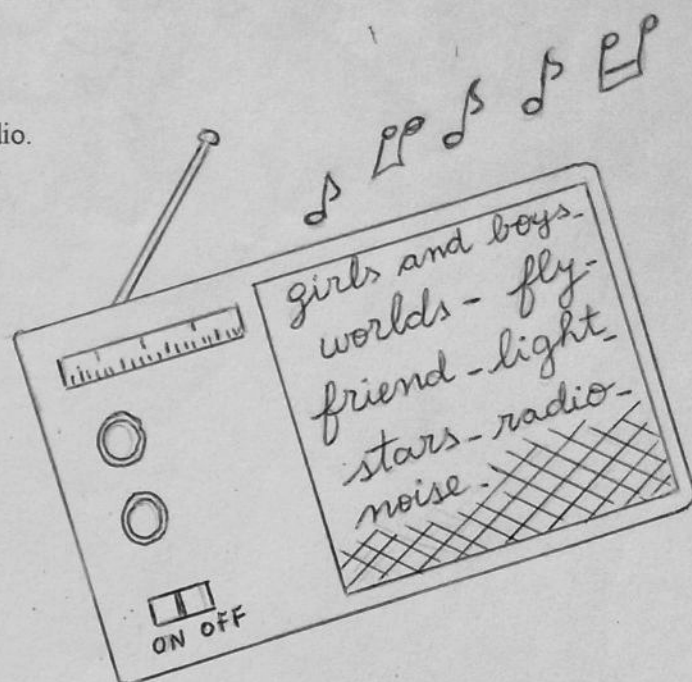 dio.
girls and boys-
worlds - fly-
friend - light-
stars - radio-
noise.
ON OFF